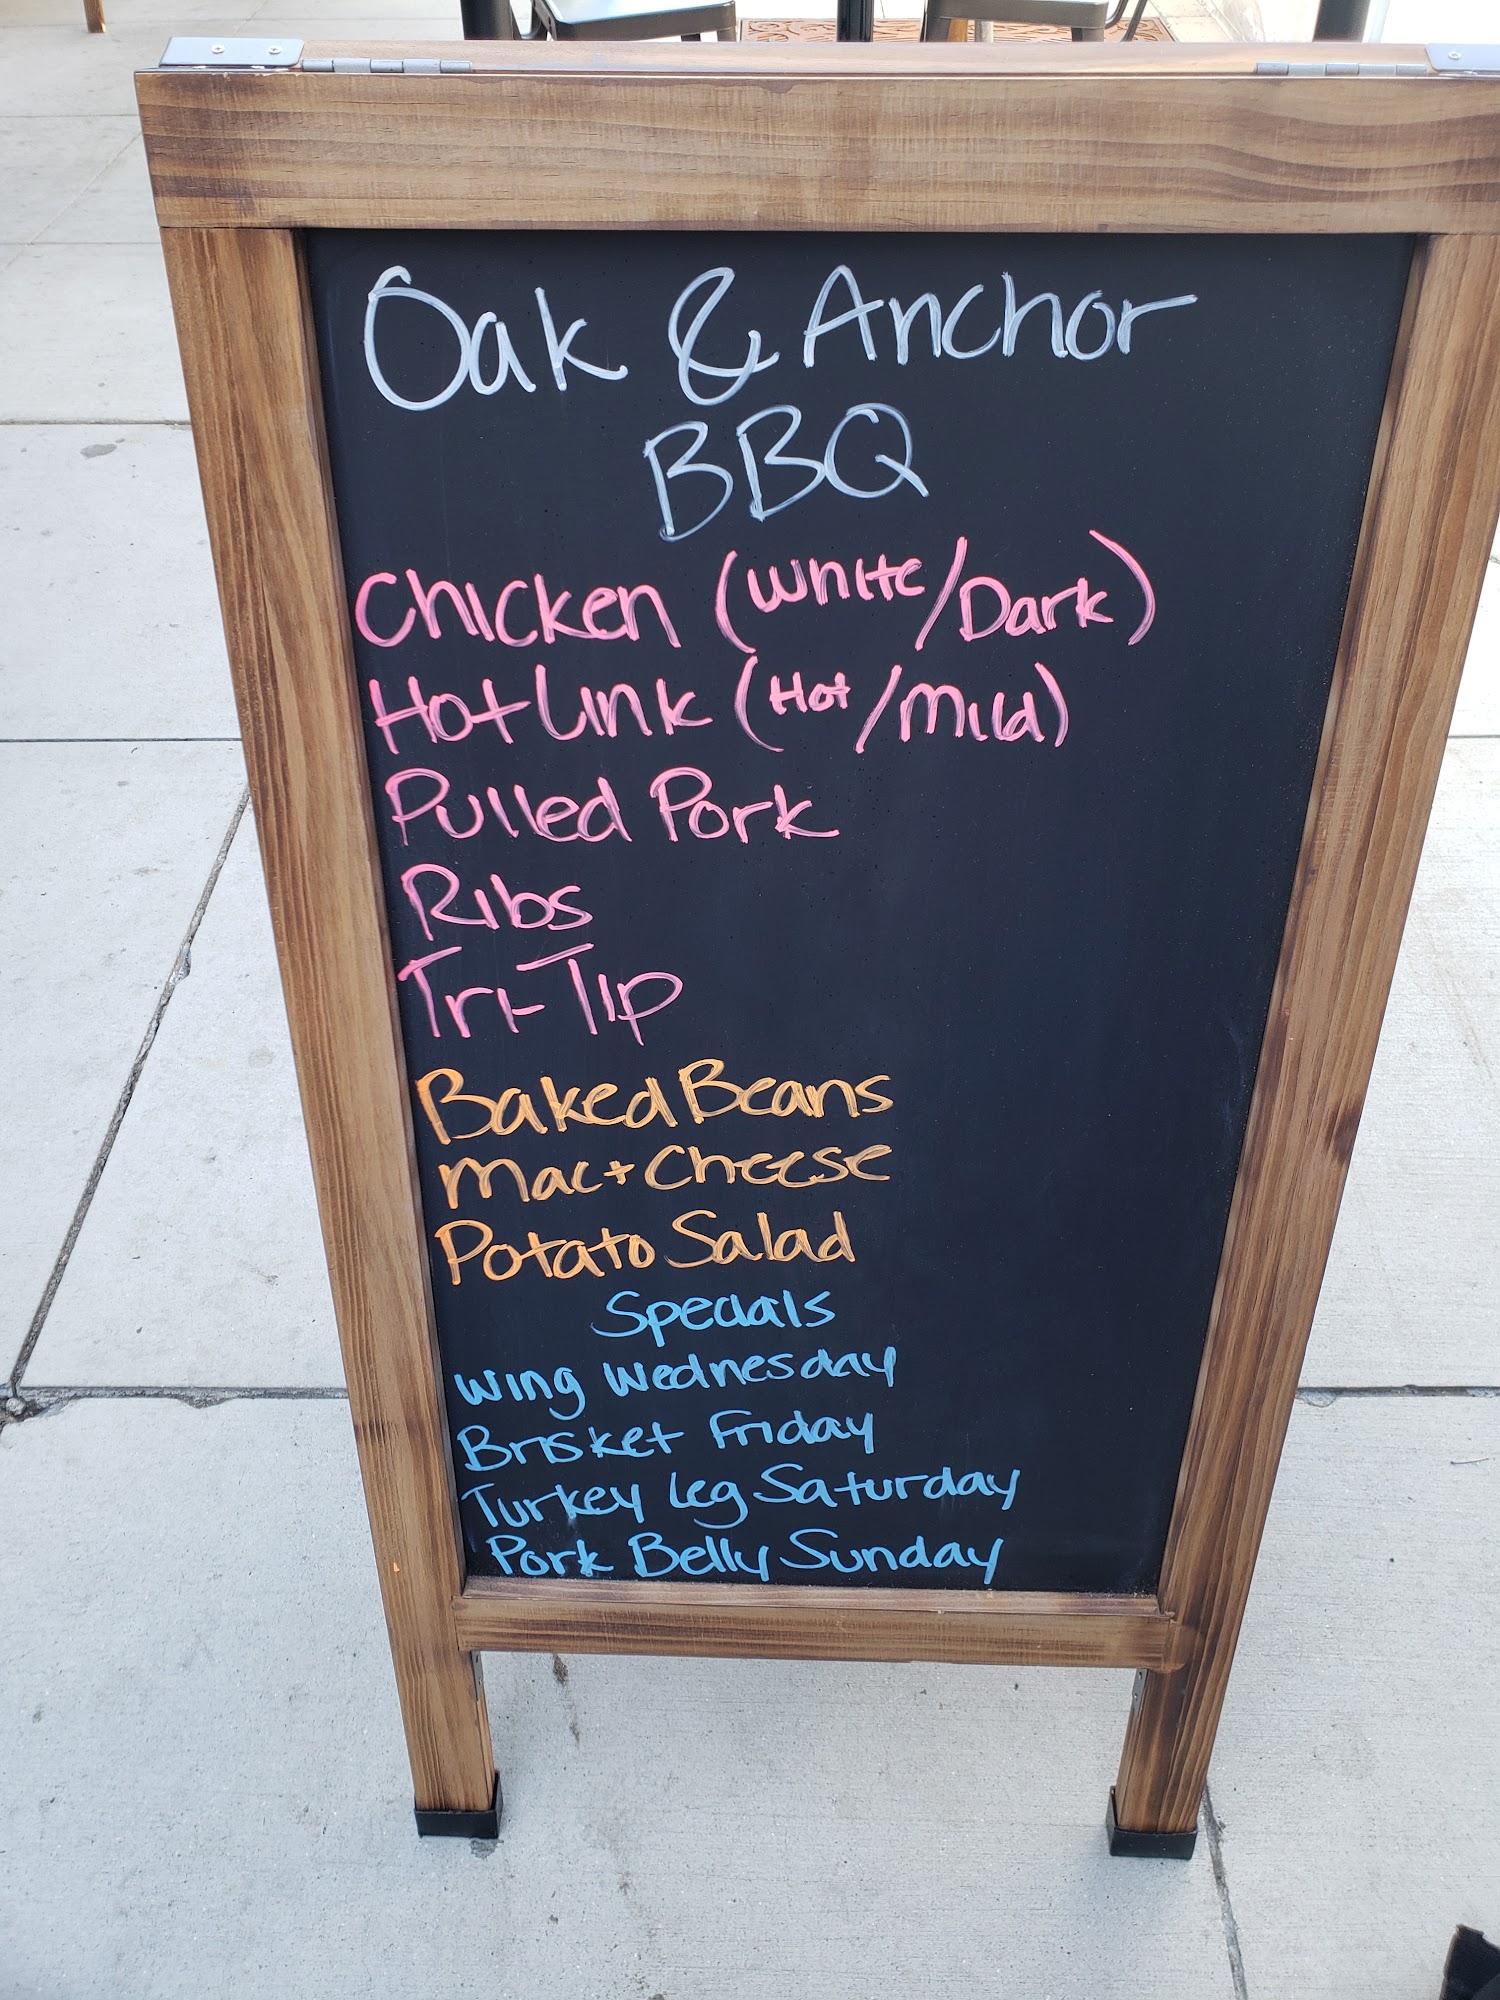 Oak & Anchor
BBQ
Chicken (White/Dark)
Hot Link (Hot/Mild)
Pulled Pork
Ribs
Tri-Tip
Baked Beans
Mac + Cheese
Potato Salad
Specials
Wing Wednesday
Brisket Friday
Turkey Leg Saturday
Pork Belly Sunday